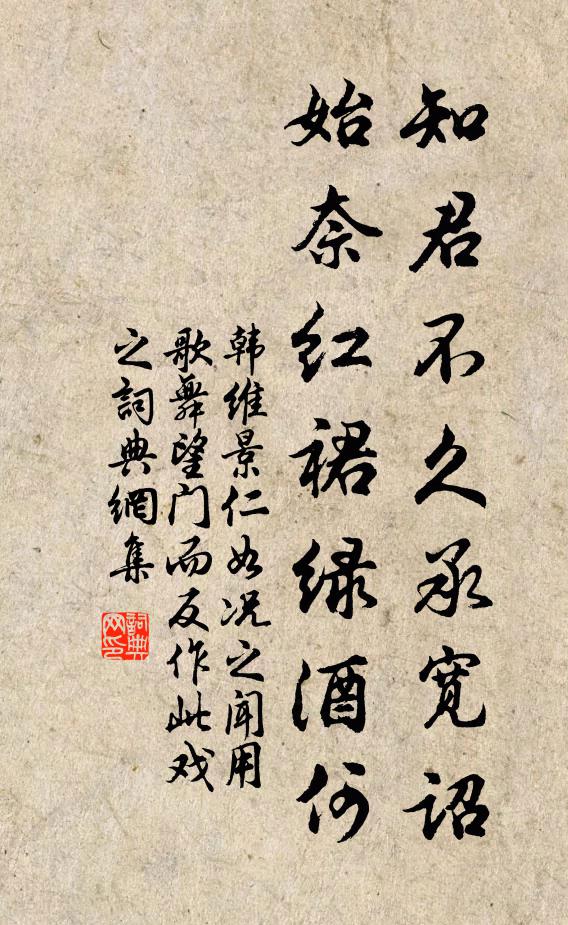 知君不久承宽诏
始奈红裙绿酒何
韩维景仁如况之闻用
歌舞望门而反作此戏
之词典网集
詞典
网印